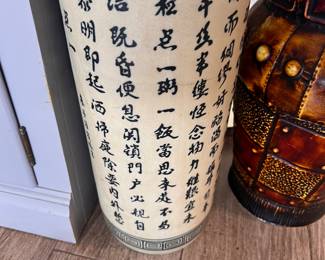 而綢繆
半絲半縷恆念物力維艱宜未
點一粥一飯當思來處不易
既昏便息關鎖門戶必親自
黎明即起洒掃庭除要内外整